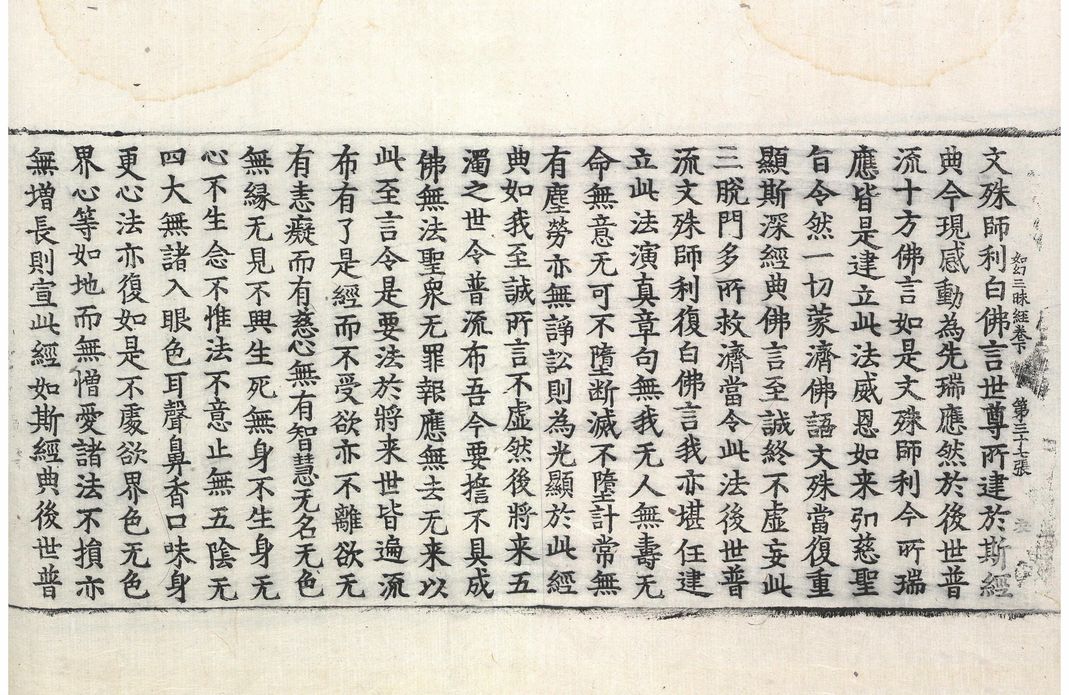 如幻三昧經卷下　第三十七張
文殊師利白佛言世尊所建於斯經
典今現感動為先瑞應然於後世普
流十方佛言如是文殊師利今所瑞
應皆是建立此法威恩如来弘慈聖
旨令然一切蒙濟佛語文殊當復重
顯斯深經典佛言至誠終不虛妄此
三脫門多所救濟當令此法後世普
流文殊師利復白佛言我亦堪任建
立此法演真章句無我无人無壽无
命無意无可不墮断滅不墮計常無
有塵勞亦無諍訟則為光顯於此經
典如我至誠所言不虛然後將来五
濁之世令普流布吾今要擔不具成
佛無法聖衆无罪報應無去无来以
此至言令是要法於將来世皆遍流
布有了是經而不受欲亦不離欲无
有恚癡而有慈心無有智慧无名无色
無縁无見不興生死無身不生身无
心不生念不惟法不意止無五陰无
四大無諸入眼色耳聲鼻香口味身
更心法亦復如是不處欲界色无色
界心等如地而無憎愛諸法不損亦
無增長則宣此經如斯經典後世普